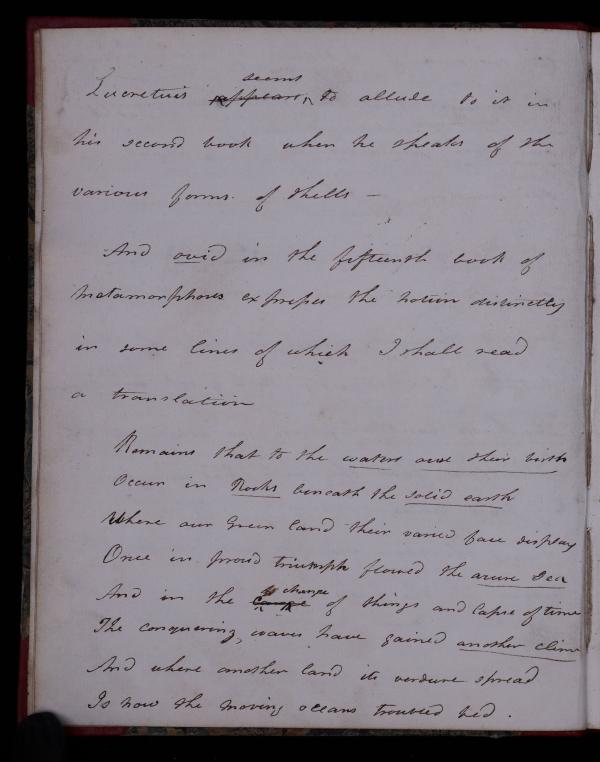 seems
Lucretius appears to allude to it in
his second book when he speaks of the
various forms of shells —
And ovid in the fifteenth book of
metamorphoses expresses the notion distinctly
in some lines of which I shall read
a translation
Remains that to the waters owe their birth
Occur in Rocks beneath the solid earth
Where our Green land their varied face display
Once in proud triumph flowed the azure Sea
change
And in the of things and lapse of time
The conquering waves have gained another clime
And where another land its verdure spread
Is now the moving oceans troubled bed.